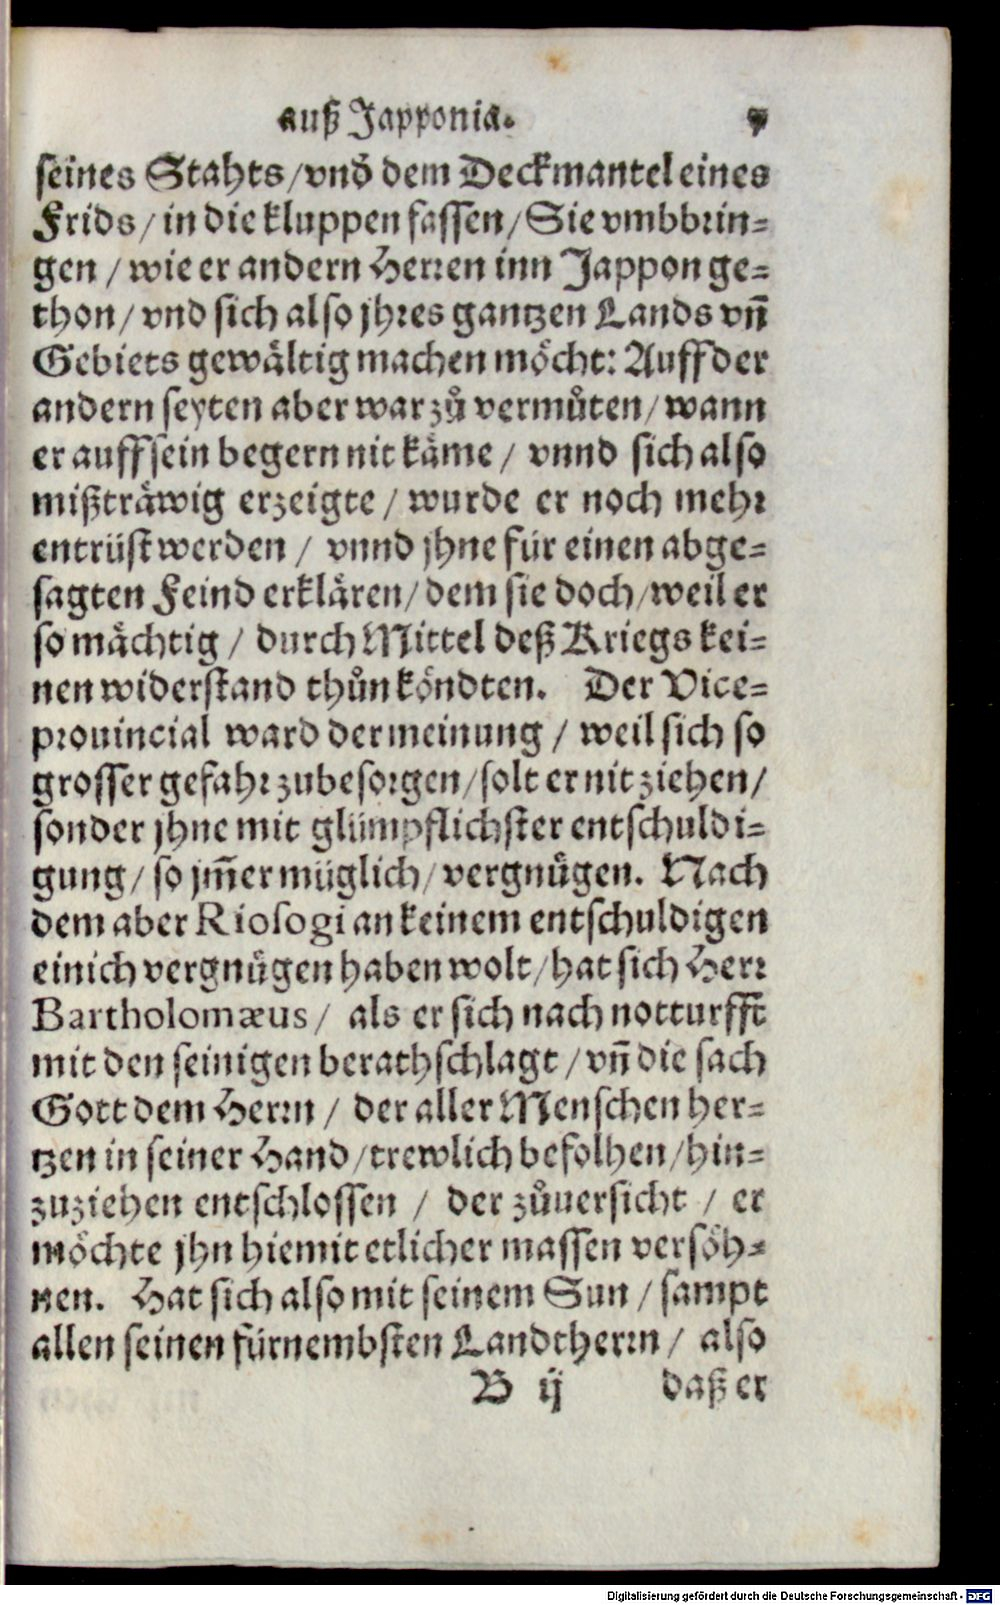 auß Japponia. 7
seines Stahts/vnd̕ dem Deckmantel eines
Frids/ in die kluppen fassen/Sie vmbbrin⸗
gen/ wie er andern Herren inn Jappon ge⸗
thon/ vnd sich also jhres gantzen Lands vñ
Gebiets gewåltig machen möcht: Auff der
andern seyten aber war zů vermůten/ wann
er auff sein begern nit kåme/ vnnd sich also
mißtråwig erzeigte/ wurde er noch mehr
entrüst werden/ vnnd jhne für einen abge⸗
sagten Feind erklåren/ dem sie doch/weil er
so måchtig/ durch Mittel deß Kriegs kei⸗
nen widerstand thůn köndten. Der Vice⸗
prouincial ward der meinung/ weil sich so
grosser gefahr zubesorgen/solt er nit ziehen/
sonder jhne mit glümpflichster entschuldi⸗
gung/ so jm̃er müglich/ vergnügen. Nach
dem aber Riosogi an keinem entschuldigen
einich vergnügen haben wolt/hat sich Herr
Bartholomæus/ als er sich nach notturfft
mit den seinigen berathschlagt/ vñ die sach
Gott dem Herrn/ der aller Menschen her⸗
tzen in seiner Hand/trewlich befolhen/hin⸗
zuziehen entschlossen/ der zůuersicht/ er
möchte jhn hiemit etlicher massen versöh⸗
nen. Hat sich also mit seinem Sun/ sampt
allen seinen fürnembsten Landtherrn/ also
B ij daß er
Digitalisierung gefördert durch die Deutsche Forschungsgemeinschaft - DFG